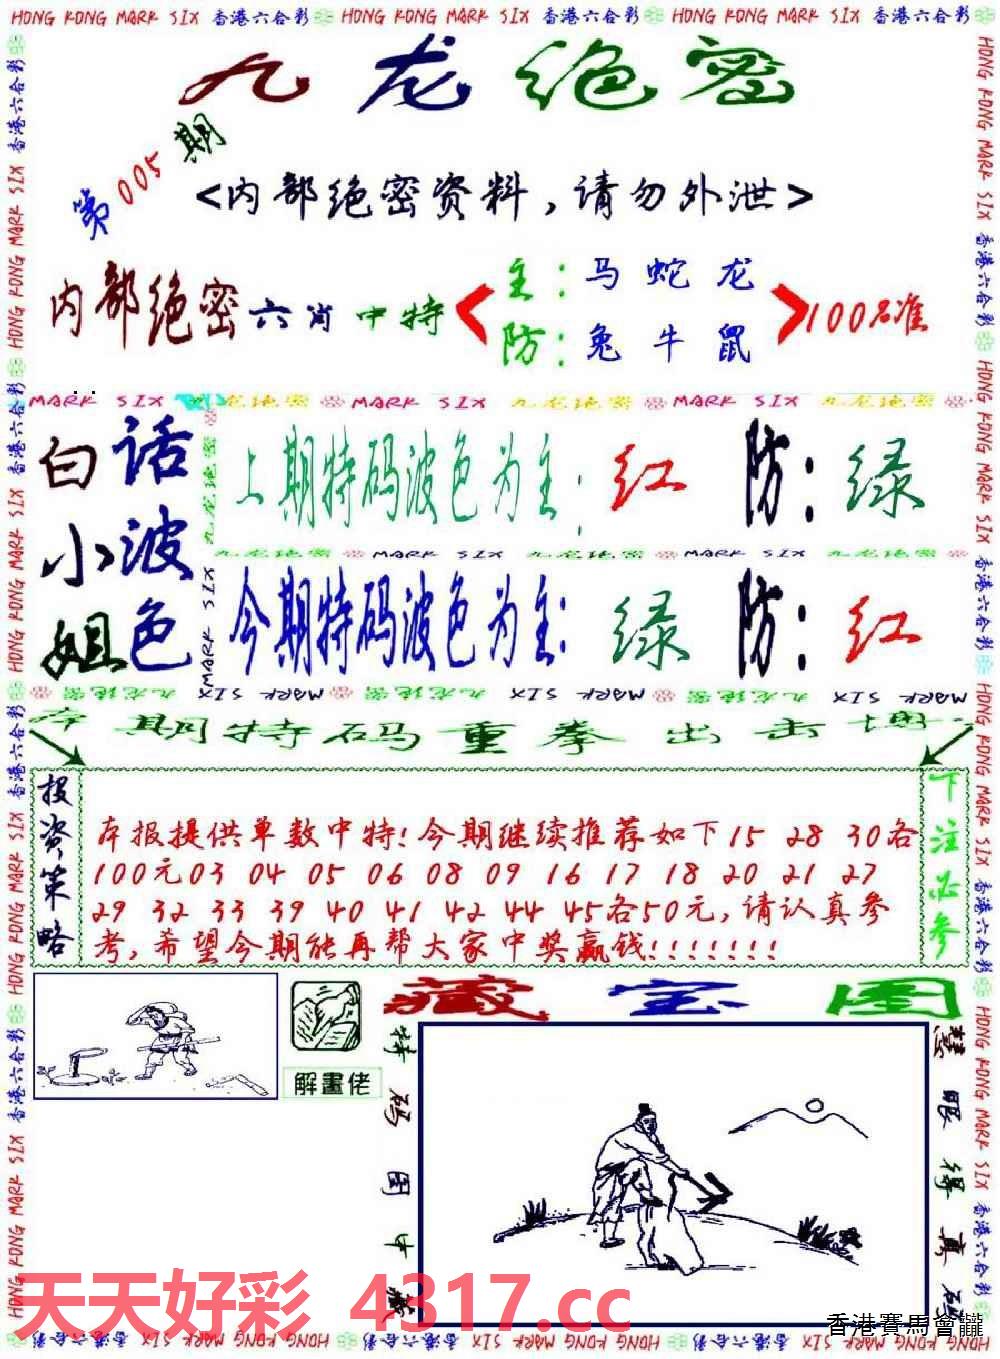 HONG KONG MARK SIX 香港六合彩 HONG KONG MARK SIX 香港六合彩 HONG KONG MARK SIX 香港六合彩
九龙绝密
第005期
<内部绝密资料,请勿外泄>
内部绝密六肖中特
主:马 蛇 龙
防:兔 牛 鼠
100%准
MARK SIX 九龙绝密 MARK SIX 九龙绝密 MARK SIX 九龙绝密
白小姐
话波色
上期特码波色为主: 红 防: 绿
九龙绝密 MARK SIX 九龙绝密 MARK SIX 九龙绝密
今期特码波色为主: 绿 防: 红
本期特码重拳出击
投资策略
本报提供单数中特!今期继续推荐如下15 28 30各
100元03 04 05 06 08 09 16 17 18 20 21 27
29 32 33 39 40 41 42 44 45各50元,请认真参
考,希望今期能再帮大家中奖赢钱!!!!!!!
下注必参
藏宝图
解畫佬
特码图中藏
慧眼得真码
天天好彩 4317.cc
香港賽馬會
HONG KONG MARK SIX 香港六合彩